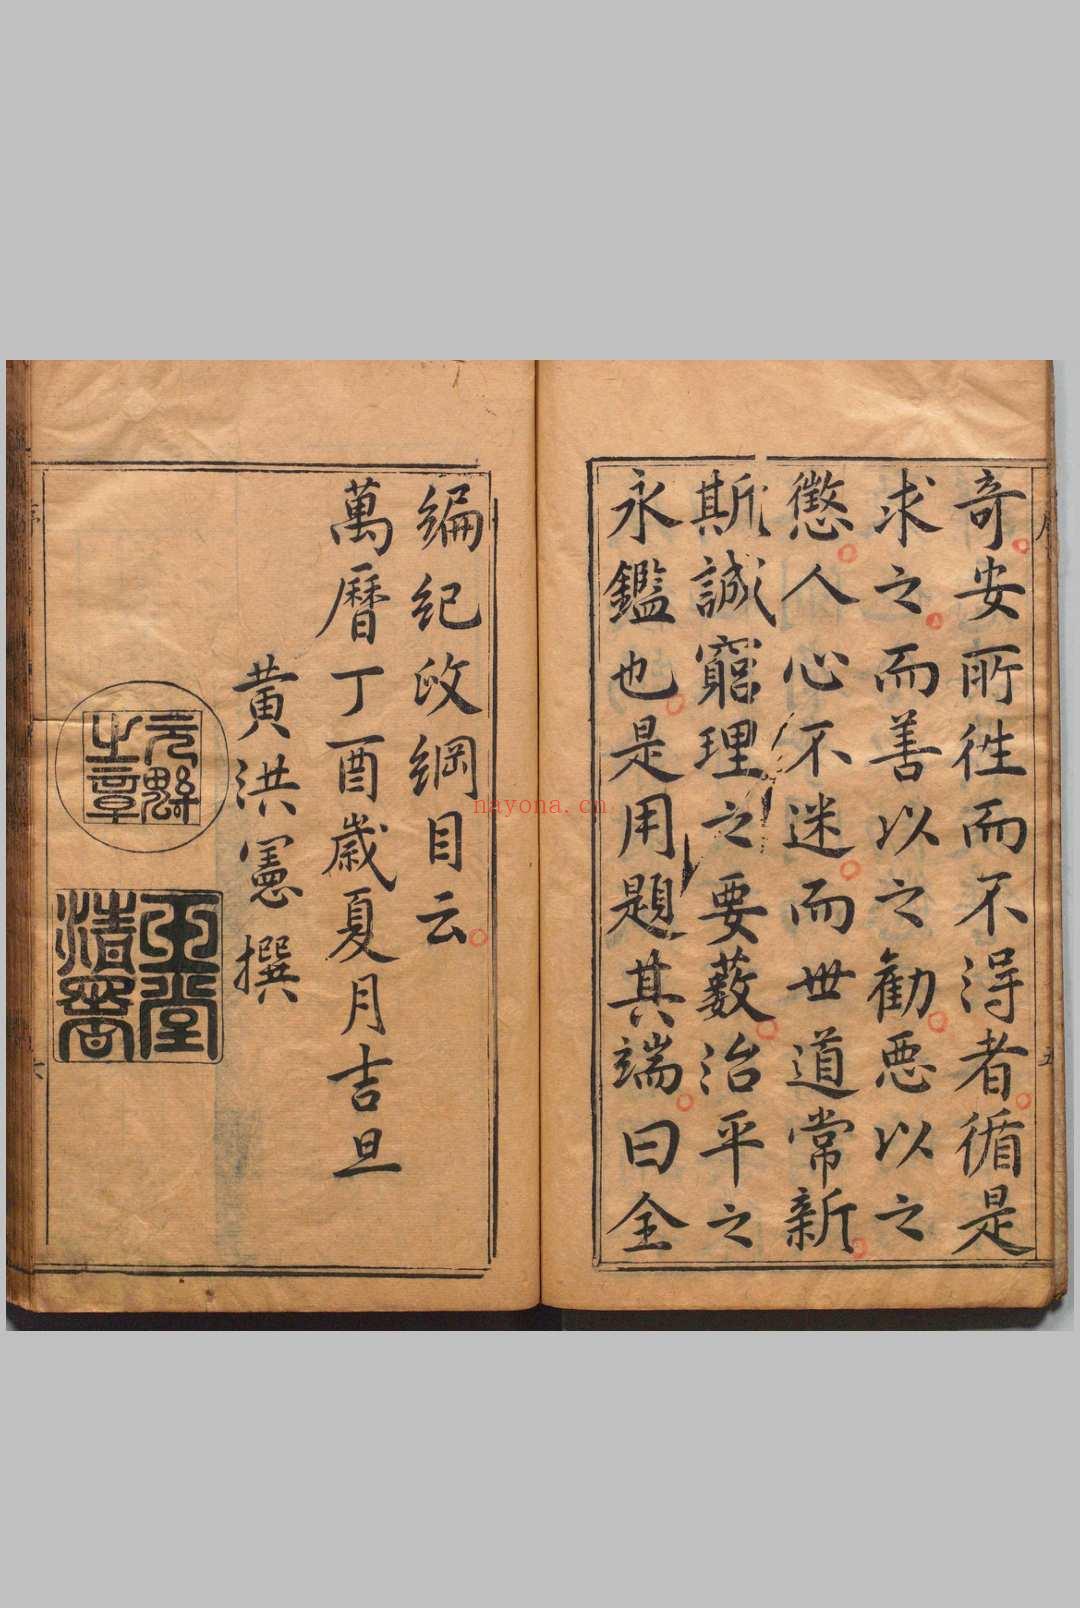 奇安所徃而不淂者循是
求之而善以之勸惡以之
懲人心不迷而世道常新
斯誠窮理之要藪治平之
永鑑也是用題其端曰全
編紀政綱目云
萬曆丁酉歲夏月吉旦
黄洪憲撰
之章
玉堂
清署
nayona.cn
五
六